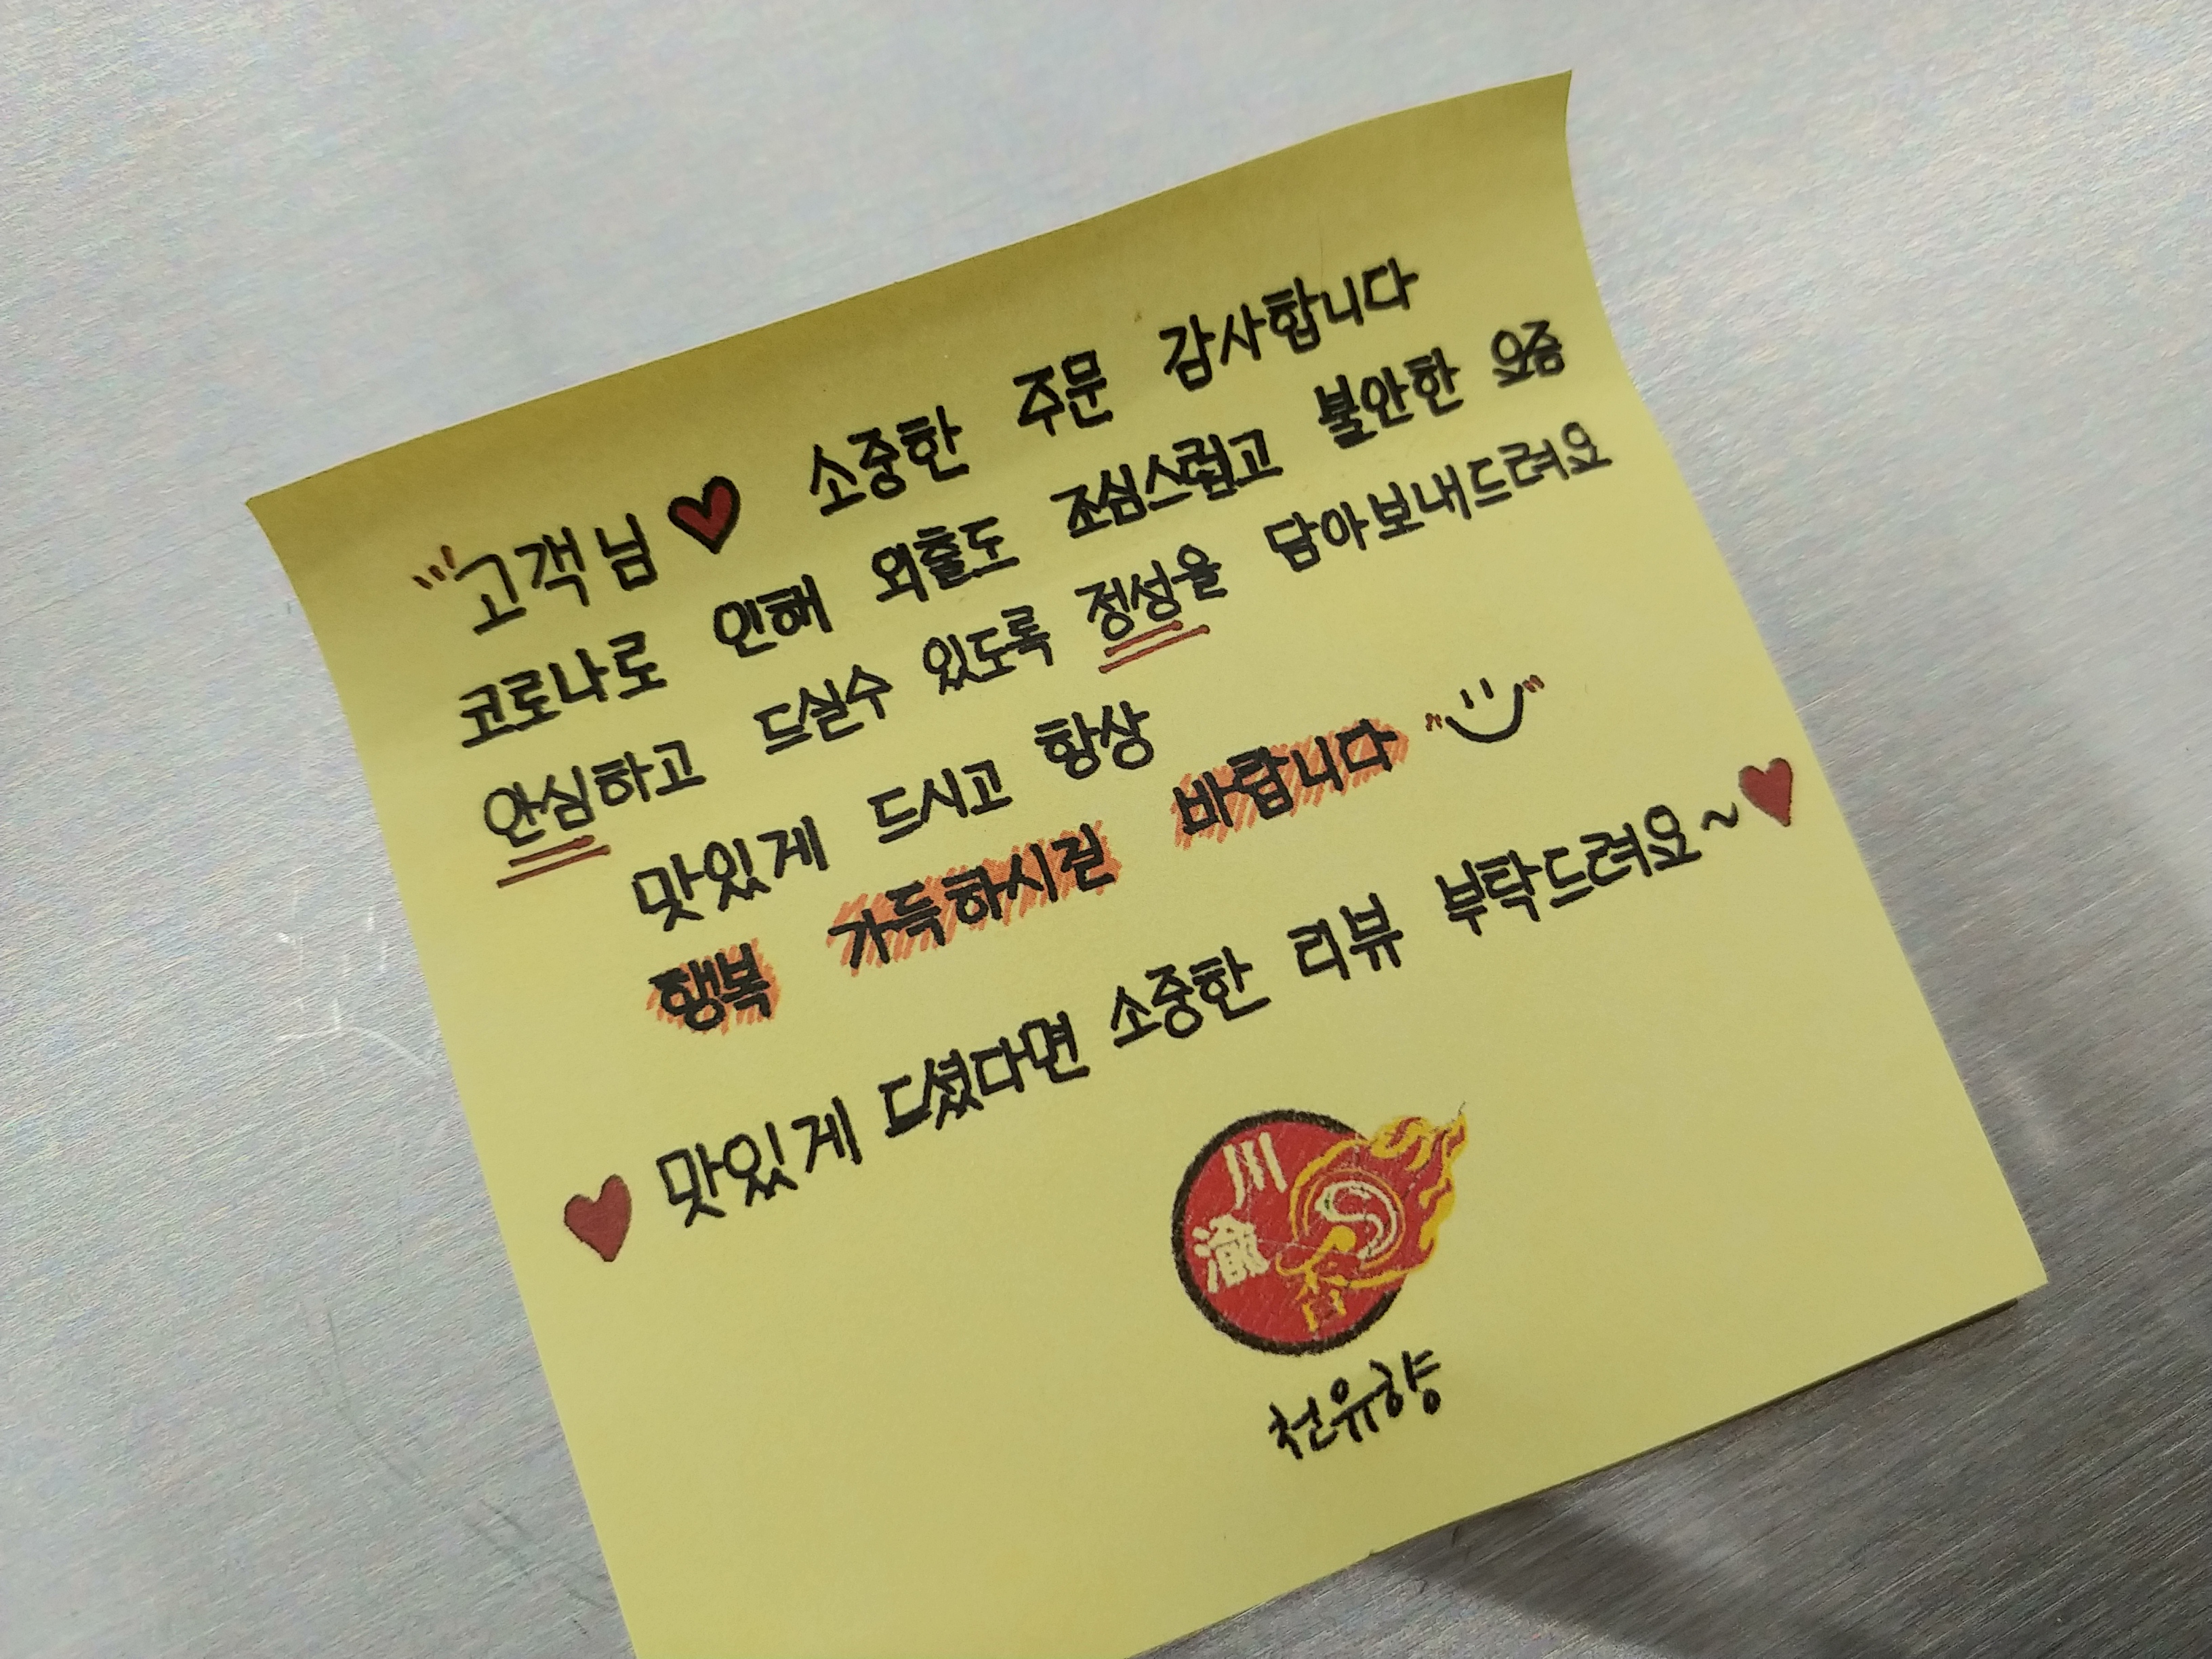 고객님♥ 소중한 주문 감사합니다
코로나로 인해 외출도 조심스럽고 불안한 요즘
안심하고 드실수 있도록 정성을 담아보내드려요
맛있게 드시고 항상
행복 가득하시길 바랍니다
♥ 맛있게 드셨다면 소중한 리뷰 부탁드려요~♥
川
渝
香
천유향